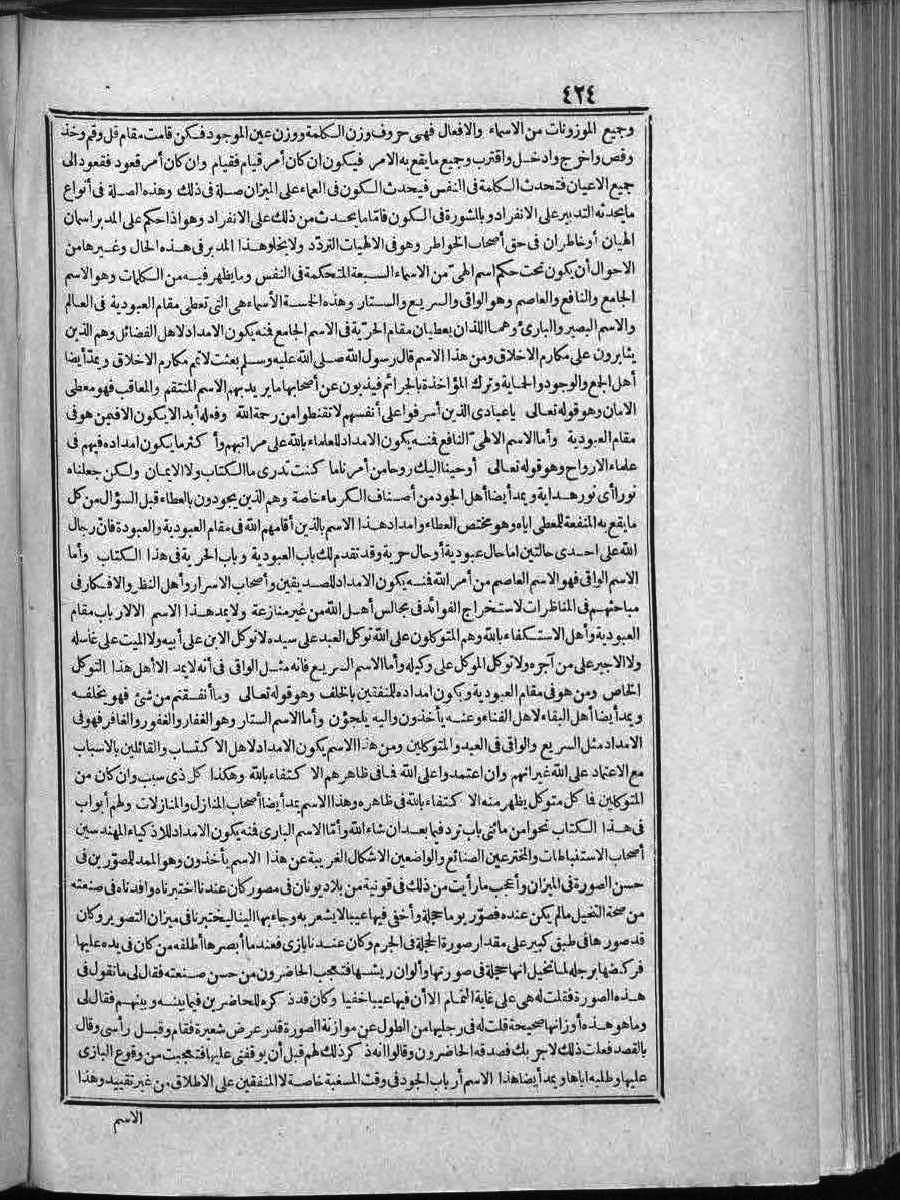 ٤٢٤
وجميع الموزونات من الاسماء والافعال فهى حروف وزن الكلمة ووزن عين الموجود فكن قامت مقام قل وقم وخذ
وقص واخرج وادخل واقترب وجميع ما يقع به الامر فيكون ان كان أمر قيام فقيام وان كان أمر قعود فقعود الى
جميع الاعيان فتحدث الكلمة فى النفس فيحدث الكون فى العماء على الميزان صلة فى ذلك وهذه الصلة فى أنواع
ما يحدثه التدبير على الانفراد وبالشورة فى الكون فاما ما يحدث من ذلك على الانفراد وهو اذا حكم على المدبر اسمان
الهيان أو خاطران فى حق أصحاب الخواطر وهو فى الالهيات التردّد ولا يخلو هذا المدبر فى هذه الحال وغيرها من
الاحوال أن يكون تحت حكم اسم الهىّ من الاسماء السبعة المتحكمة فى النفس وما يظهر فيه من الكلمات وهو الاسم
الجامع والنافع والعاصم وهو الواقى والسريع والستار وهذه الخمسة الأسماء هى التى تعطى مقام العبودية فى العالم
والاسم البصير والبارئ وهما اللذان يعطيان مقام الحرّية فى الاسم الجامع فنه يكون الامداد لاهل الفضائل وهم الذين
يثابرون على مكارم الاخلاق ومن هذا الاسم قال رسول الله صلى الله عليه وسلم بعثت لاتمم مكارم الاخلاق ويمدّ أيضا
أهل الجمع والوجود والحماية وترك المؤاخذة بالجرائم فيذبون عن أصحابها ما يريد بهم الاسم المنتقم والمعاقب فهو معطى
الامان وهو قوله تعالى ياعبادى الذين أسرفوا على أنفسهم لا تقنطوا من رحمة الله وفعله أبدا لا يكون الا فيمن هو فى
مقام العبودية وأما الاسم الالهىّ النافع فنه يكون الامداد للعلماء بالله على مراتبهم وأكثر ما يكون امداده فيهم فى
علماء الارواح وهو قوله تعالى أوحينا اليك روحا من أمرنا ما كنت تدرى ما الكتاب ولا الايمان ولكن جعلناه
نورا أى نور هداية ويمد أيضا أهل الجود من أصناف الكرماء خاصة وهم الذين يجودون بالعطاء قبل السؤال من كل
ما يقع به المنفعة للمعطى اياه وهو مختص العطاء وامداد هذا الاسم بالذين أقامهم الله فى مقام العبودية والعبودة فانّ رجال
الله على احدى حالتين اما حال عبودية أو حال حرية وقد تقدم لك باب العبودية وباب الحرية فى هذا الكتاب وأما
الاسم الواقى فهو الاسم العاصم من أمر الله فنه يكون الامداد للصديقين وأصحاب الاسرار وأهل النظر والافكار فى
مباحثهم فى المناظرات لاستخراج الفوائد فى مجالس أهل الله من غير منازعة ولا يمد هذا الاسم الا لارباب مقام
العبودية وأهل الاستكفاء بالله وهم المتوكلون على الله توكل العبد على سيده لا توكل الابن على أبيه ولا الميت على غاسله
ولا الاجير على من آجره ولا توكل الموكل على وكيله وأما الاسم السريع فانه مثل الواقى فى أنه لا يمد الا أهل هذا التوكل
الخاص ومن هو فى مقام العبودية ويكون امداده للمنفقين بالخلف وهو قوله تعالى وما أنفقتم من شئ فهو يخلفه
ويمد أيضا أهل البقاء لاهل الفناء وعنه يأخذون واليه يلجؤن وأما الاسم الستار وهو الغفار والغفور والغافر فهو فى
الامداد مثل السريع والواقى فى العبيد والمتوكلين ومن هذا الاسم يكون الامداد لاهل الاكتساب والقائلين بالاسباب
مع الاعتماد على الله غير انهم وان اعتمدوا على الله فا فى ظاهرهم الاكتفاء بالله وهكذا كل ذى سبب وان كان من
المتوكلين فا كل متوكل يظهر منه الاكتفاء بالله فى ظاهره وهذا الاسم يمد أيضا أصحاب المنازل والمنازلات ولهم أبواب
فى هذا الكتاب نحوا من مائتى باب ترد فيما بعد ان شاء الله وأمّا الاسم البارى فنه يكون الامداد للاذكياء المهندسين
أصحاب الاستنباطات والمخترعين الصنائع والواضعين الاشكال الغريبة عن هذا الاسم يأخذون وهو الممد للمصوّرين فى
حسن الصورة فى الميزان وأعجب ما رأيت من ذلك فى قونية من بلاد يونان فى مصور كان عندنا اختبرناه وأفدناه فى صنعته
من صحة التخيل ما لم يكن عنده فصوّر يوما حجلة وأخفى فيها عيبا لا يشعر به وجاء بها الينا ليختبرنا فى ميزان التصوير وكان
قد صورها فى طبق كبير على مقدار صورة الحجلة فى الجرم وكان عندنا بازى فعندما أبصرها أطلقه من كان فى يده عليها
فركضها برجله لما تخيل انها حجلة فى صورتها وألوان ريشها فتعجب الحاضرون من حسن صنعته فقال لى ما تقول فى
هذه الصورة فقلت له هى على غاية التمام الا أن فيها عيبا خفيا وكان قد ذكره للحاضرين فيما بينه وبينهم فقال لى
وما هو هذه أوزانها صحيحة قلت له فى رجليها من الطول عن موازنة الصورة قدر عرض شعيرة فقام وقبل رأسى وقال
بالقصد فعلت ذلك لاجربك فصدقه الحاضرون وقالوا انه ذكر ذلك لهم قبل أن يوقفنى عليها فتعجبت من وقوع البازى
عليها وطلبه اياها ويمد أيضا هذا الاسم أرباب الجود فى وقت المسغبة خاصة لا المنفقين على الاطلاق من غير تقييد وهذا
الاسم